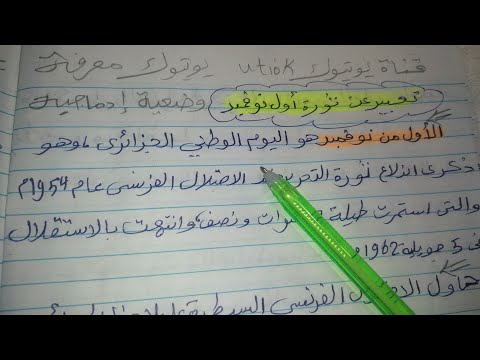 قناة يوتيوك utiok يوتيوك معرفة
تعبير عن ثورة أول نوفمبر وضعية إدماجية
الأول من نوفمبر هو اليوم الوطني الجزائري ، وهو
ذكرى اندلاع ثورة التحرير الاحتلال الفرنسي عام 1954م
والتي استمرت طيلة ونصف، وانتهت بالاستقلال
في 5 جويلية 1962م
حاول الاحتلال الفرنسي